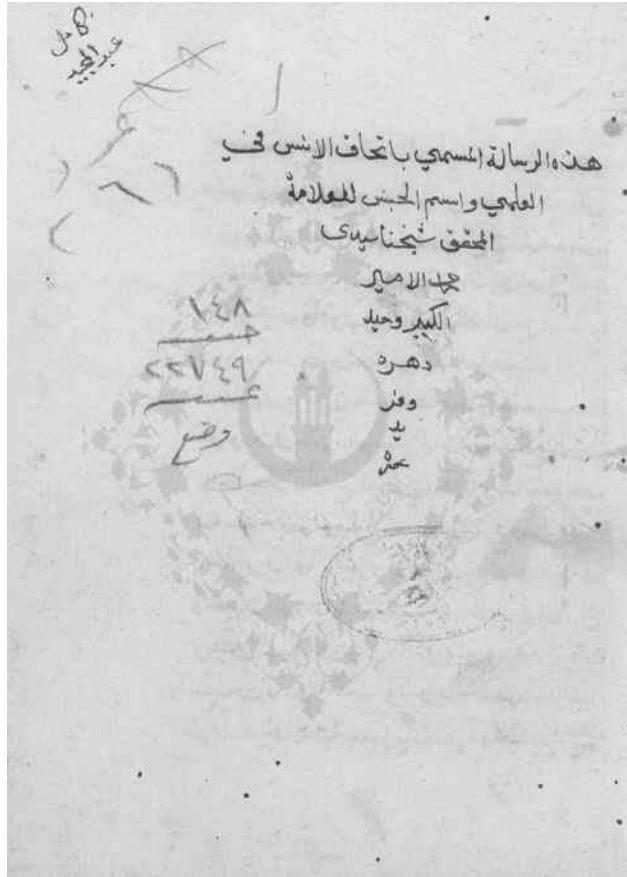 كامل
عبد المجيد
هذه الرسالة المسمي باتحاف الانس في
العلمي واسم الجنس للعلامة
المحقق شيخنا سيدى
محمد الامير
الكبير وحيد
دهره
وفر
يد
عصره
١٤٨
٢٢٧٤٩
وضع